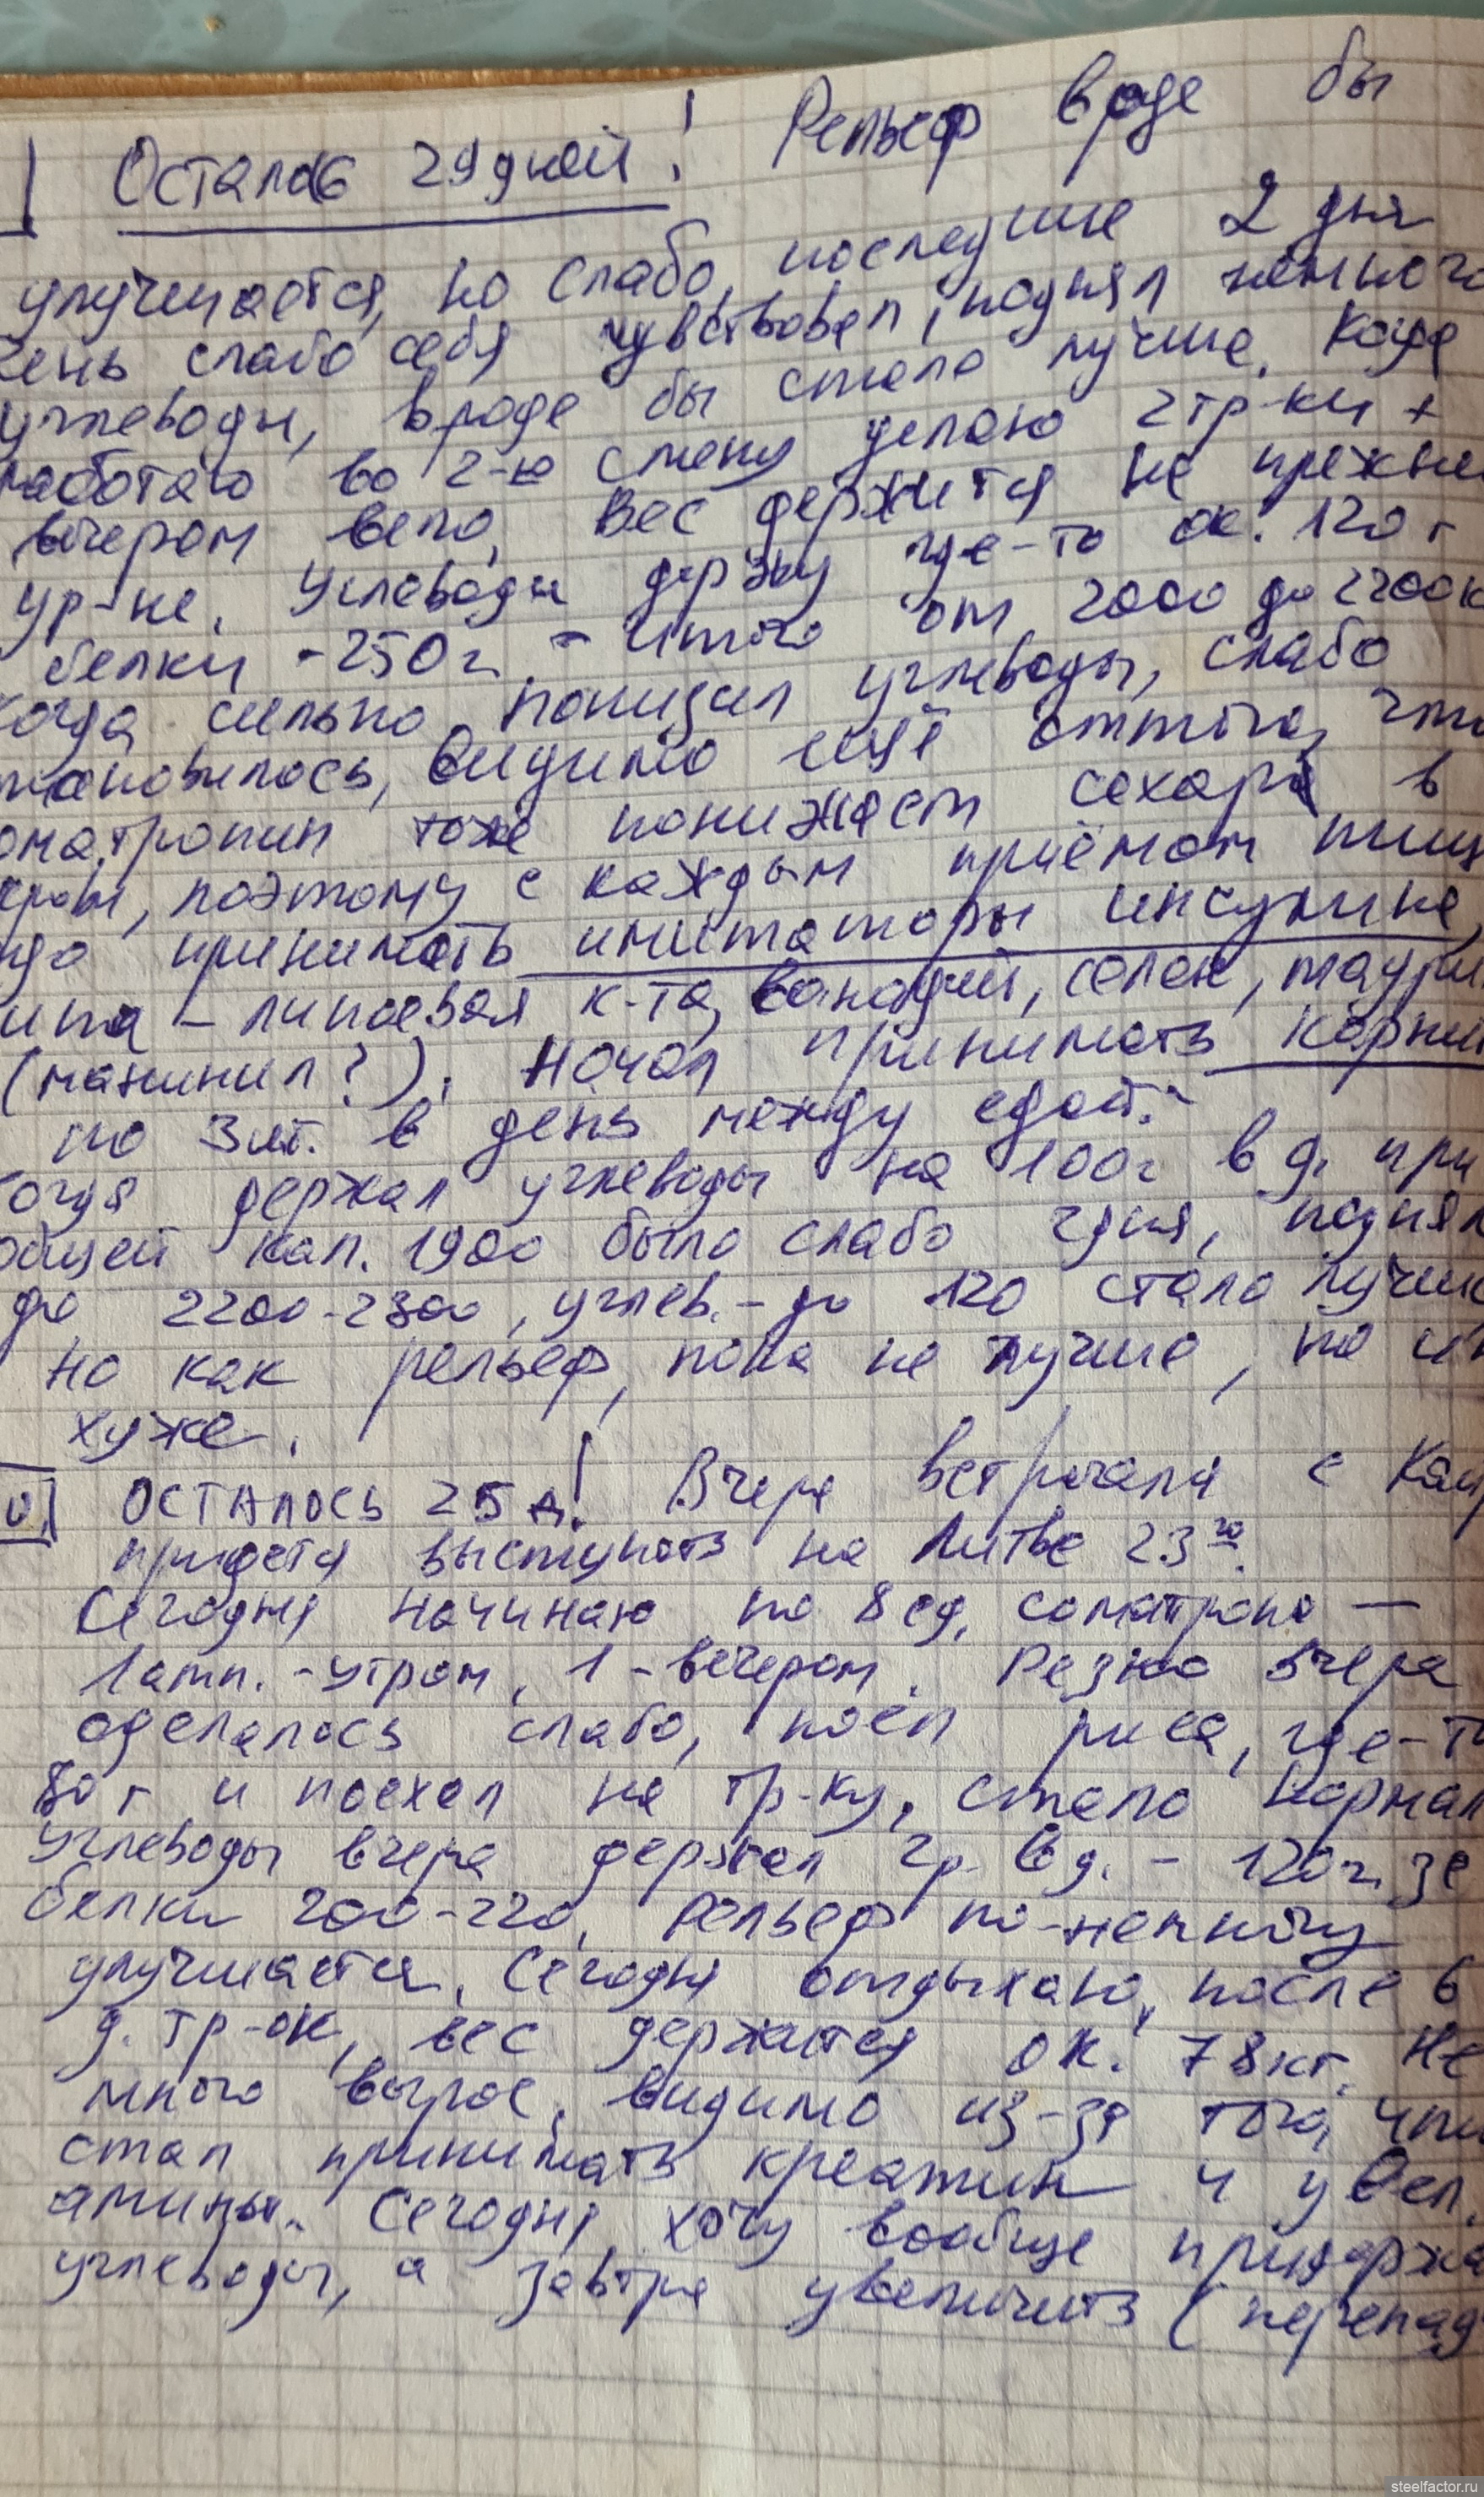 Осталось 29 дней! Рельеф вроде бы
улучшается, но слабо, последние 2 дня
чень слабо себя чувствовал, поднял немного
углеводы, вроде бы стало лучше. Когда
работаю во 2-ю смену делаю 2 тр-ки +
вечером вело. Вес держится на прежне
ур-не. Углеводы держу где-то ок. 120 г
белки - 250 г. - Итого от 2000 до 2200к
Когда сильно понизил углеводы, слабо
тановилось, видимо ещё оттого, что
оматропин тоже понижает сахара в
крови, поэтому с каждым приёмом пищ
надо принимать имитаторы инсулина,
типа - липоевая к-та, ванадий, селен, таури
(манинил?). Начал принимать Корнит
по 3 шт. в день между едой.
Когда держал углеводы на 100г в д. при
общей кал. 1900 было слабо 2 дня, поднял
до 2200-2300, углев. - до 120 стало лучше
но как рельеф, пока не лучше, но и н
хуже.
ОСТАЛОСЬ 25 д! Вчера встречался с
придется выступать на Литве 23го.
Сегодня начинаю по 8 ед. соматропа —
1 амп. - утром, 1 - вечером. Резко вчера
сделалось слабо, поел риса, где-то
80 г и поехал на тр-ку, стало нормал
Углеводы вчера держал 2р. в д. - 120г. за
белки 200-220. Рельеф по-немногу
улучшается. Сегодня отдыхаю, после 6
д. тр-ок, вес держится ок. 78кг. Не
много вырос, видимо из-за того, что
стал принимать креатин и увел.
амины. Сегодня хочу вообще придержа
углеводы, а завтра увеличить (перепад
steelfactor.ru